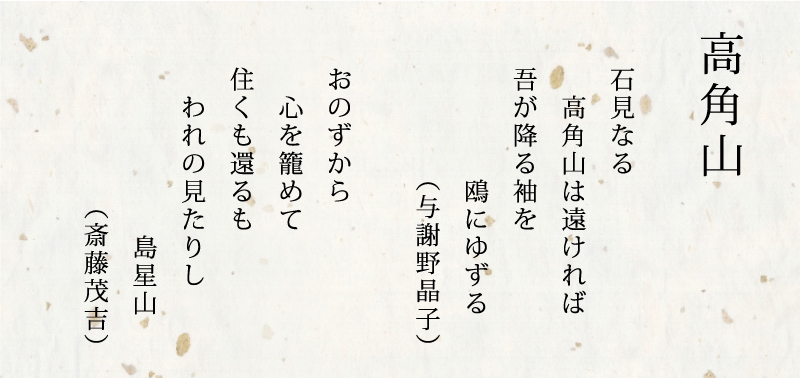 高角山
石見なる
高角山は遠ければ
吾が降る袖を
鴎にゆずる
（与謝野晶子）
おのずから
心を籠めて
住くも還るも
われの見たりし
島星山
（斎藤茂吉）